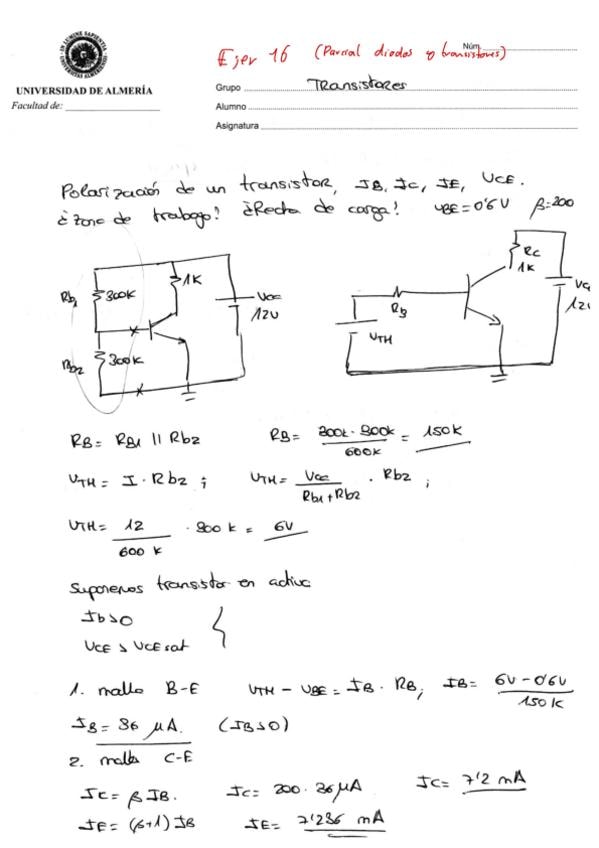 IN LUMINE SAPIENTIA
UNIVERSIDAD DE ALMERÍA
Facultad de:
Ejer 16 (Parcial diodos y transistores)
Núm.
Grupo Transistores
Alumno
Asignatura
Polarización de un transistor, IB, IC, IE, VCE.
¿Zona de trabajo? ¿Recta de carga? VBE=0'6V β=200
Rb1 300K 1K Vcc 12V
Rb2 300K
Rc 1K Vcc 12V
RB
VTH
RB = RB1 || Rb2 RB = 300k · 300k / 600k = 150K
VTH = I · Rb2 ; VTH = Vcc / Rb1+Rb2 · Rb2 ;
VTH = 12 / 600 K · 300 k = 6V
Suponemos transistor en activa
Ib>0
VCE > VCE sat
1. malla B-E VTH - VBE = IB · RB; IB = 6V - 0'6V / 150K
IB = 36 μA. (IB>0)
2. malla C-E
IC = β IB. IC = 200 · 36μA IC = 7'2 mA
IE = (β+1) IB IE = 7'236 mA